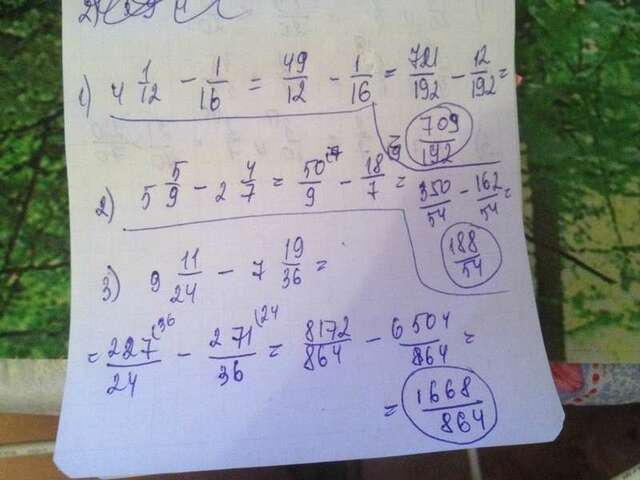 1) 4 1/12 - 1/16 = 49/12 - 1/16 = 721/192 - 12/192 =
709/192
2) 5 5/9 - 2 4/7 = 50/9 - 18/7 = 350/54 - 162/54 =
188/54
3) 9 11/24 - 7 19/36 =
= 227(36/24 - 271(24/36 = 8172/864 - 6504/864 =
= 1668/864